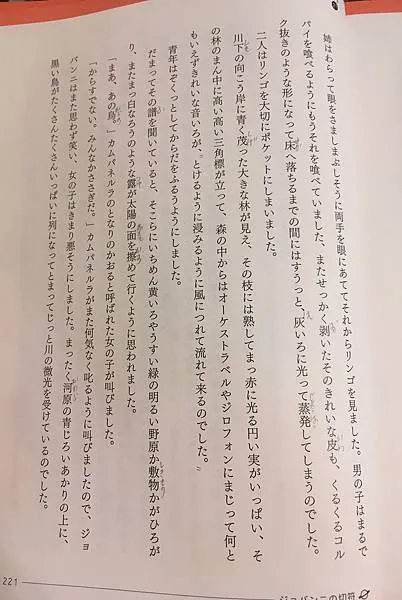 姉はわらって眼をさましまぶしそうに両手を眼にあててそれからリンゴを見ました。男の子はまるで
パイを喰べるようにもうそれを喰べていました、またせっかく剥いたそのきれいな皮も、くるくるコル
ク抜きのような形になって床へ落ちるまでの間にはすうっと、灰いろに光って蒸発してしまうのでした。
二人はリンゴを大切にポケットにしまいました。
川下の向こう岸に青く茂った大きな林が見え、その枝には熟してまっ赤に光る円い実がいっぱい、そ
の林のまん中に高い高い三角標が立って、森の中からはオーケストラベルやジロフォンにまじって何と
もいえずきれいな音いろが、とけるように浸みるように風につれて流れて来るのでした。
青年はぞくっとしてからだをふるうようにしました。
だまってその譜を聞いていると、そこらにいちめん黄いろやうすい緑の明るい野原か敷物かがひろが
り、またまっ白なろうのような露が太陽の面を擦めて行くように思われました。
「まあ、あの烏。」カムパネルラのとなりのかおると呼ばれた女の子が叫びました。
「からすでない。みんなかささぎだ。」カムパネルラがまた何気なく叱るように叫びましたので、ジョ
バンニはまた思わず笑い、女の子はきまり悪そうにしました。まったく河原の青じろいあかりの上に、
黒い鳥がたくさんたくさんいっぱいに列になってとまってじっと川の微光を受けているのでした。
221
ジョバンニの切符